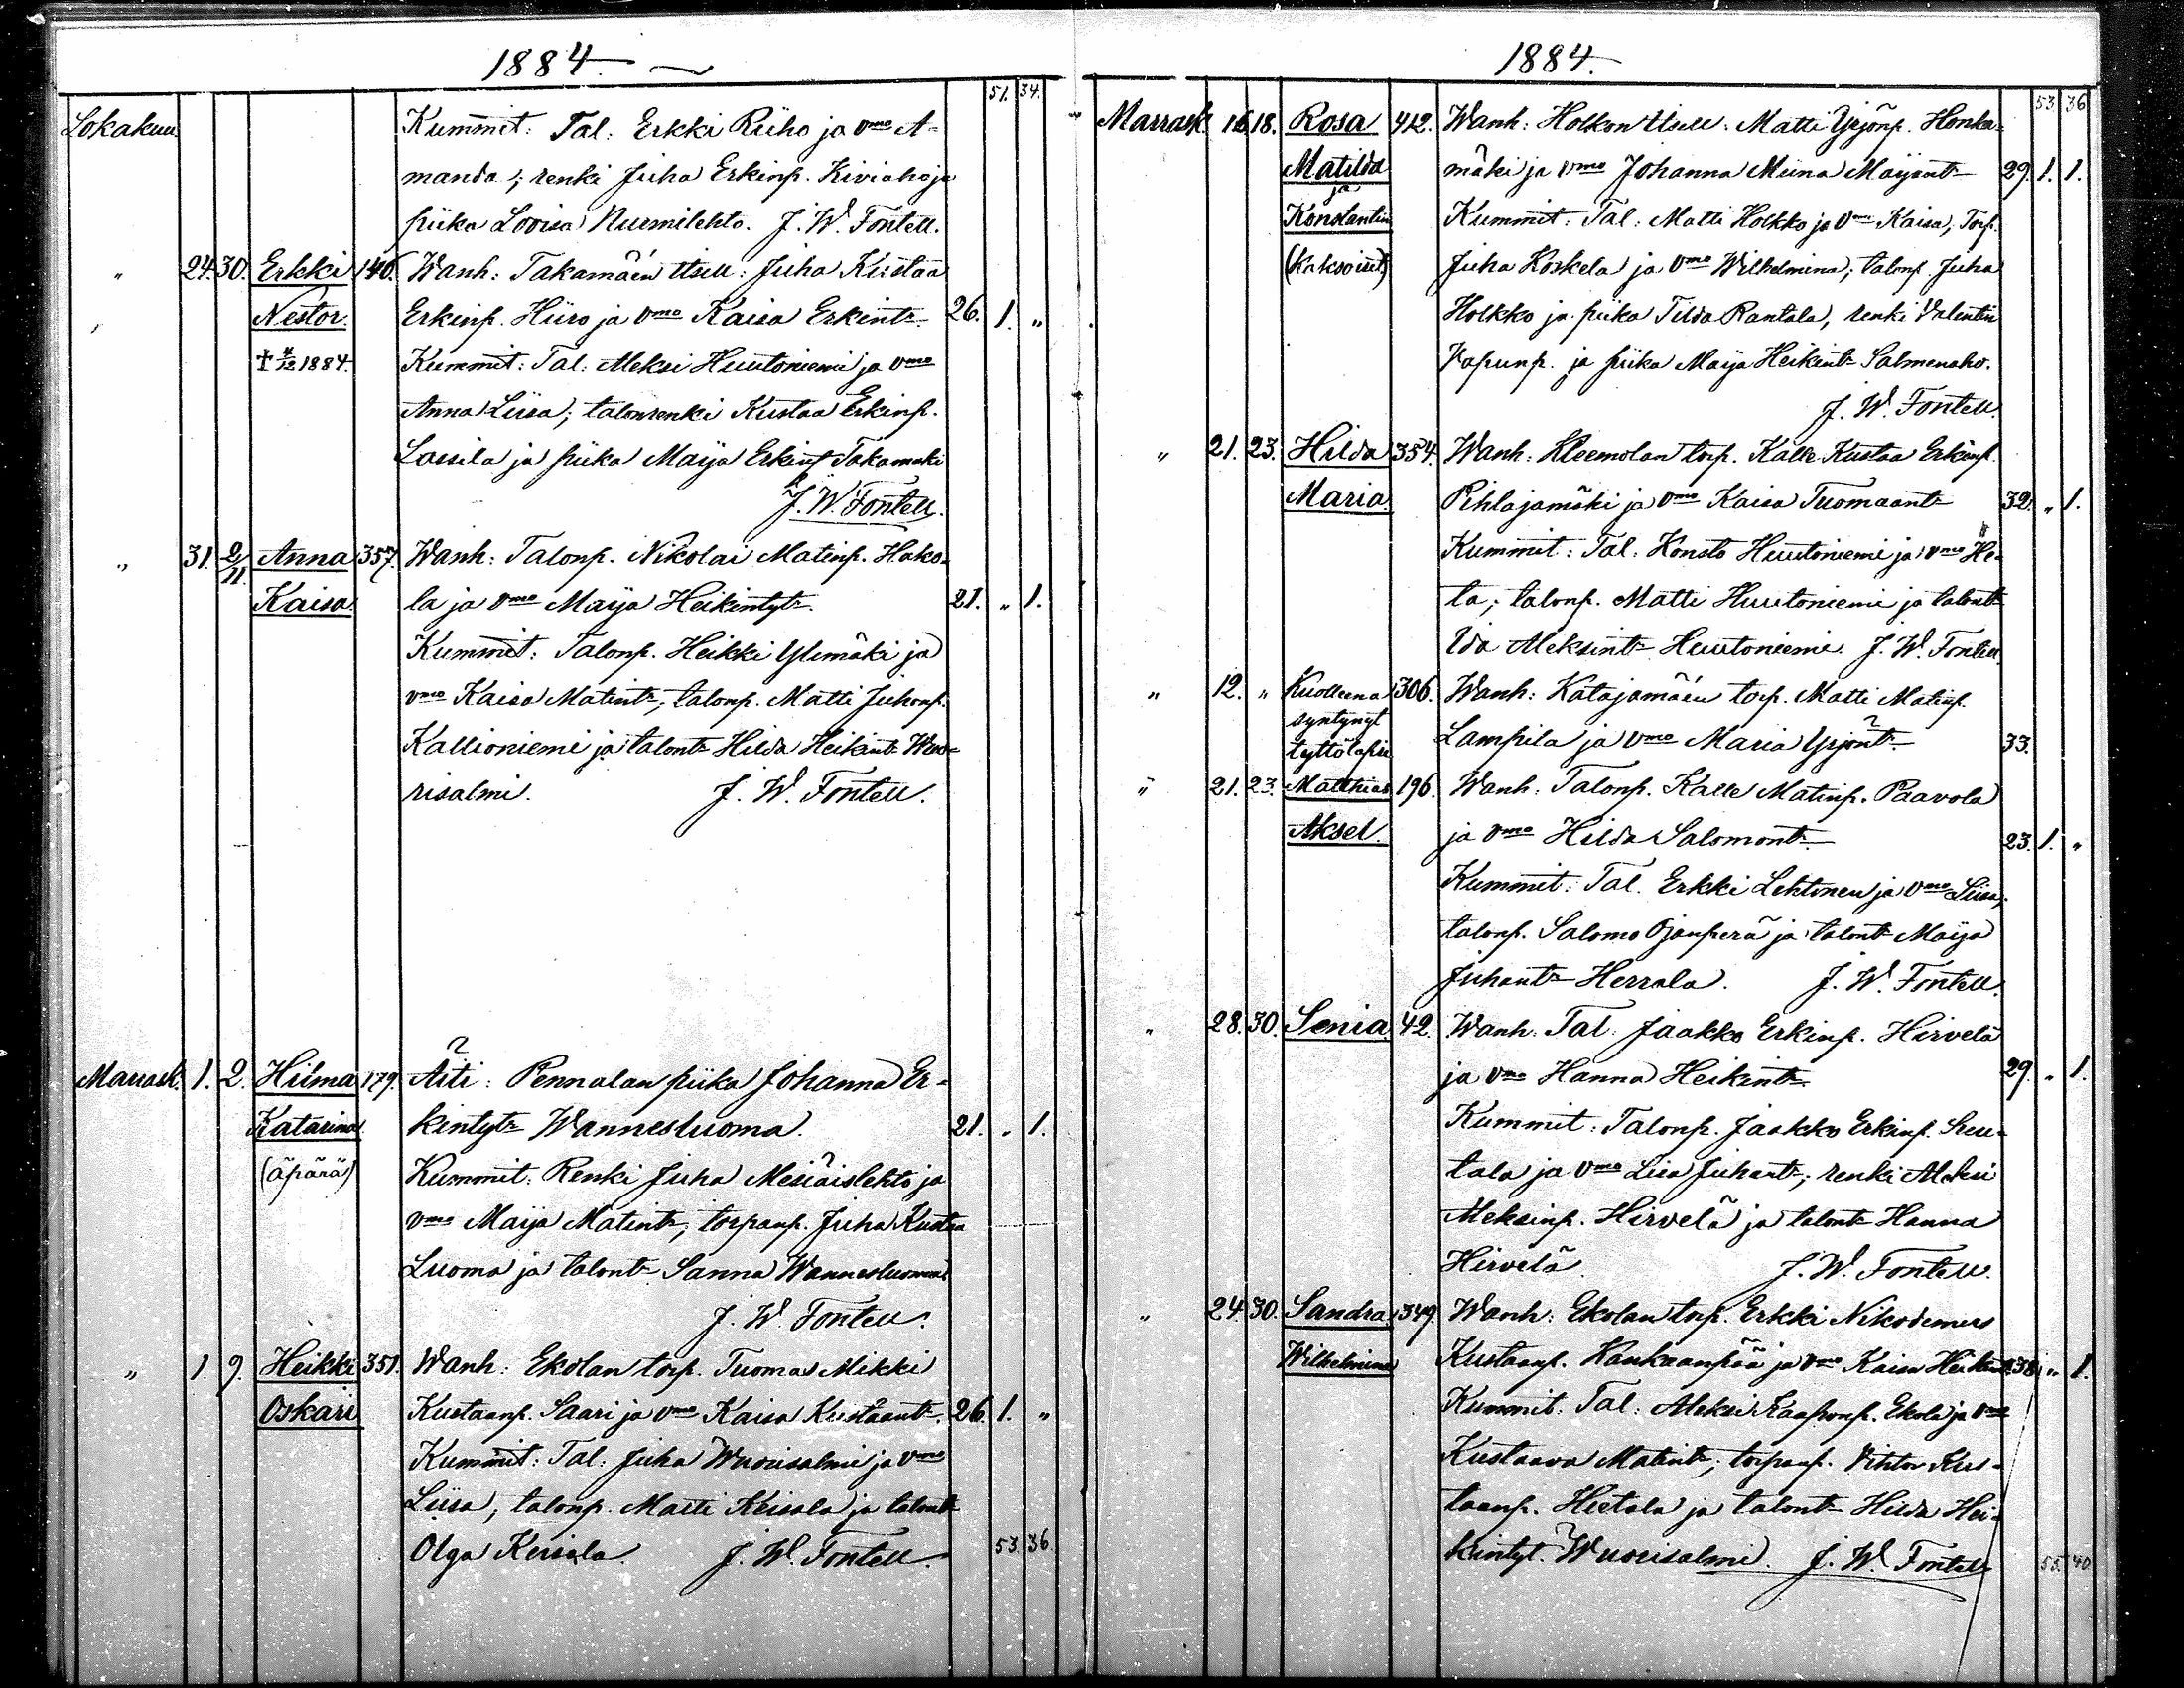 1884.
51. 34.
Lokakuu Kummit: Tal: Erkki Riiho ja vmo A-
manda; renki Juha Erkinp. Kiviaho ja
piika Lovisa Nurmilehto. J. W. Fontell.
" 24. 30. Erkki 140. Wanh: Takamäen itsell: Juha Kustaa
Nestor. Erkinp. Hiiro ja vmo Kaisa Erkintr. 26. 1. "
† 4/12 1884. Kummit: Tal: Aleksi Huutoniemi ja vmo
Anna Liisa; talonrenki Kustaa Erkinp.
Lassila ja piika Maija Erkint Takamäki
J. W. Fontell.
" 31. 2/11. Anna 357. Wanh: Talonp. Nikolai Matinp. Hako-
Kaisa. la ja vmo Maija Heikintytr. 21. " 1.
Kummit: Talonp. Heikki Ylimäki ja
vmo Kaisa Matintr; talonp. Matti Juhonp.
Kallioniemi ja talontr Hilda Heikintr Wuo-
risalmi. J. W. Fontell.
Marrask. 1. 2. Hilma 179. Äiti: Pennalan piika Johanna Er-
Katarina. kintytr Wannesluoma. 21. " 1.
(äpärä) Kummit: Renki Juha Mesiäislehto ja
vmo Maija Matintr; torpanp. Juha Kustaa
Luoma ja talontr Sanna Wannesluoma
J. W. Fontell.
" 1. 9. Heikki 351. Wanh: Ekolan torp. Tuomas Mikki
Oskari Kustaanp. Saari ja vmo Kaisa Kustaantr. 26. 1. "
Kummit: Tal: Juha Wuorisalmi ja vmo
Liisa; talonp. Matti Keisala ja talontr
Olga Keisala. J. W. Fontell. 53. 36.
1884.
53 36
Marrask. 16. 18. Rosa 412. Wanh: Holkon itsell: Matti Yrjönp. Honka-
Matilda mäki ja vmo Johanna Miina Maijantr 29. 1. 1.
ja
Konstantin Kummit: Tal: Matti Holkko ja vmo Kaisa; Torp.
(Kaksoiset) Juha Koskela ja vmo Wilhelmina; talonp. Juha
Holkko ja piika Tilda Rantala, renki Valentin
Vapunp. ja piika Maija Heikintr Salmenaho.
J. W. Fontell.
" 21. 23. Hilda 354. Wanh: Kleemolan torp. Kalle Kustaa Erkinp.
Maria. Pihlajamäki ja vmo Kaisa Tuomaantr 32. " 1.
Kummit: Tal: Konsta Huutoniemi ja vmo He-
ta; talonp. Matti Huutoniemi ja talontr
Ida Aleksintr Huutoniemi. J. W. Fontell.
" 12. " Kuolleena 306. Wanh: Katajamäen torp. Matti Matinp.
syntynyt
tyttölapsi Lampila ja vmo Maria Yrjöntr 33.
" 21. 23. Matthias 196. Wanh: Talonp. Kalle Matinp. Paavola
Aksel. ja vmo Hilda Salomontr. 23. 1. "
Kummit: Tal. Erkki Lehtinen ja vmo Liisa;
talonp. Salomo Ojanperä ja talontr Maija
Juhantr Herrala. J. W. Fontell.
" 28. 30. Senia. 42. Wanh: Tal: Jaakko Erkinp. Hirvelä
ja vmo Hanna Heikintr. 29. " 1.
Kummit: Talonp. Jaakko Erkinp.
tala ja vmo Liisa Juhantr; renki Aleksi
Aleksinp. Hirvelä ja talontr Hanna
Hirvelä J. W. Fontell.
" 24. 30. Sandra 349. Wanh: Ekolan torp. Erkki Nikodemus
Wilhelmina Kustaanp. Kankaanpää ja vmo Kaisa Heikintr. 38. " 1.
Kummit: Tal: Aleksi Kaaponp. Ekola ja vmo
Kustaava Matintr; torpanp. Vihtor Kus-
taanp. Hietala ja talontr Hilda Hei-
kintyt. Wuorisalmi. J. W. Fontell 55. 40